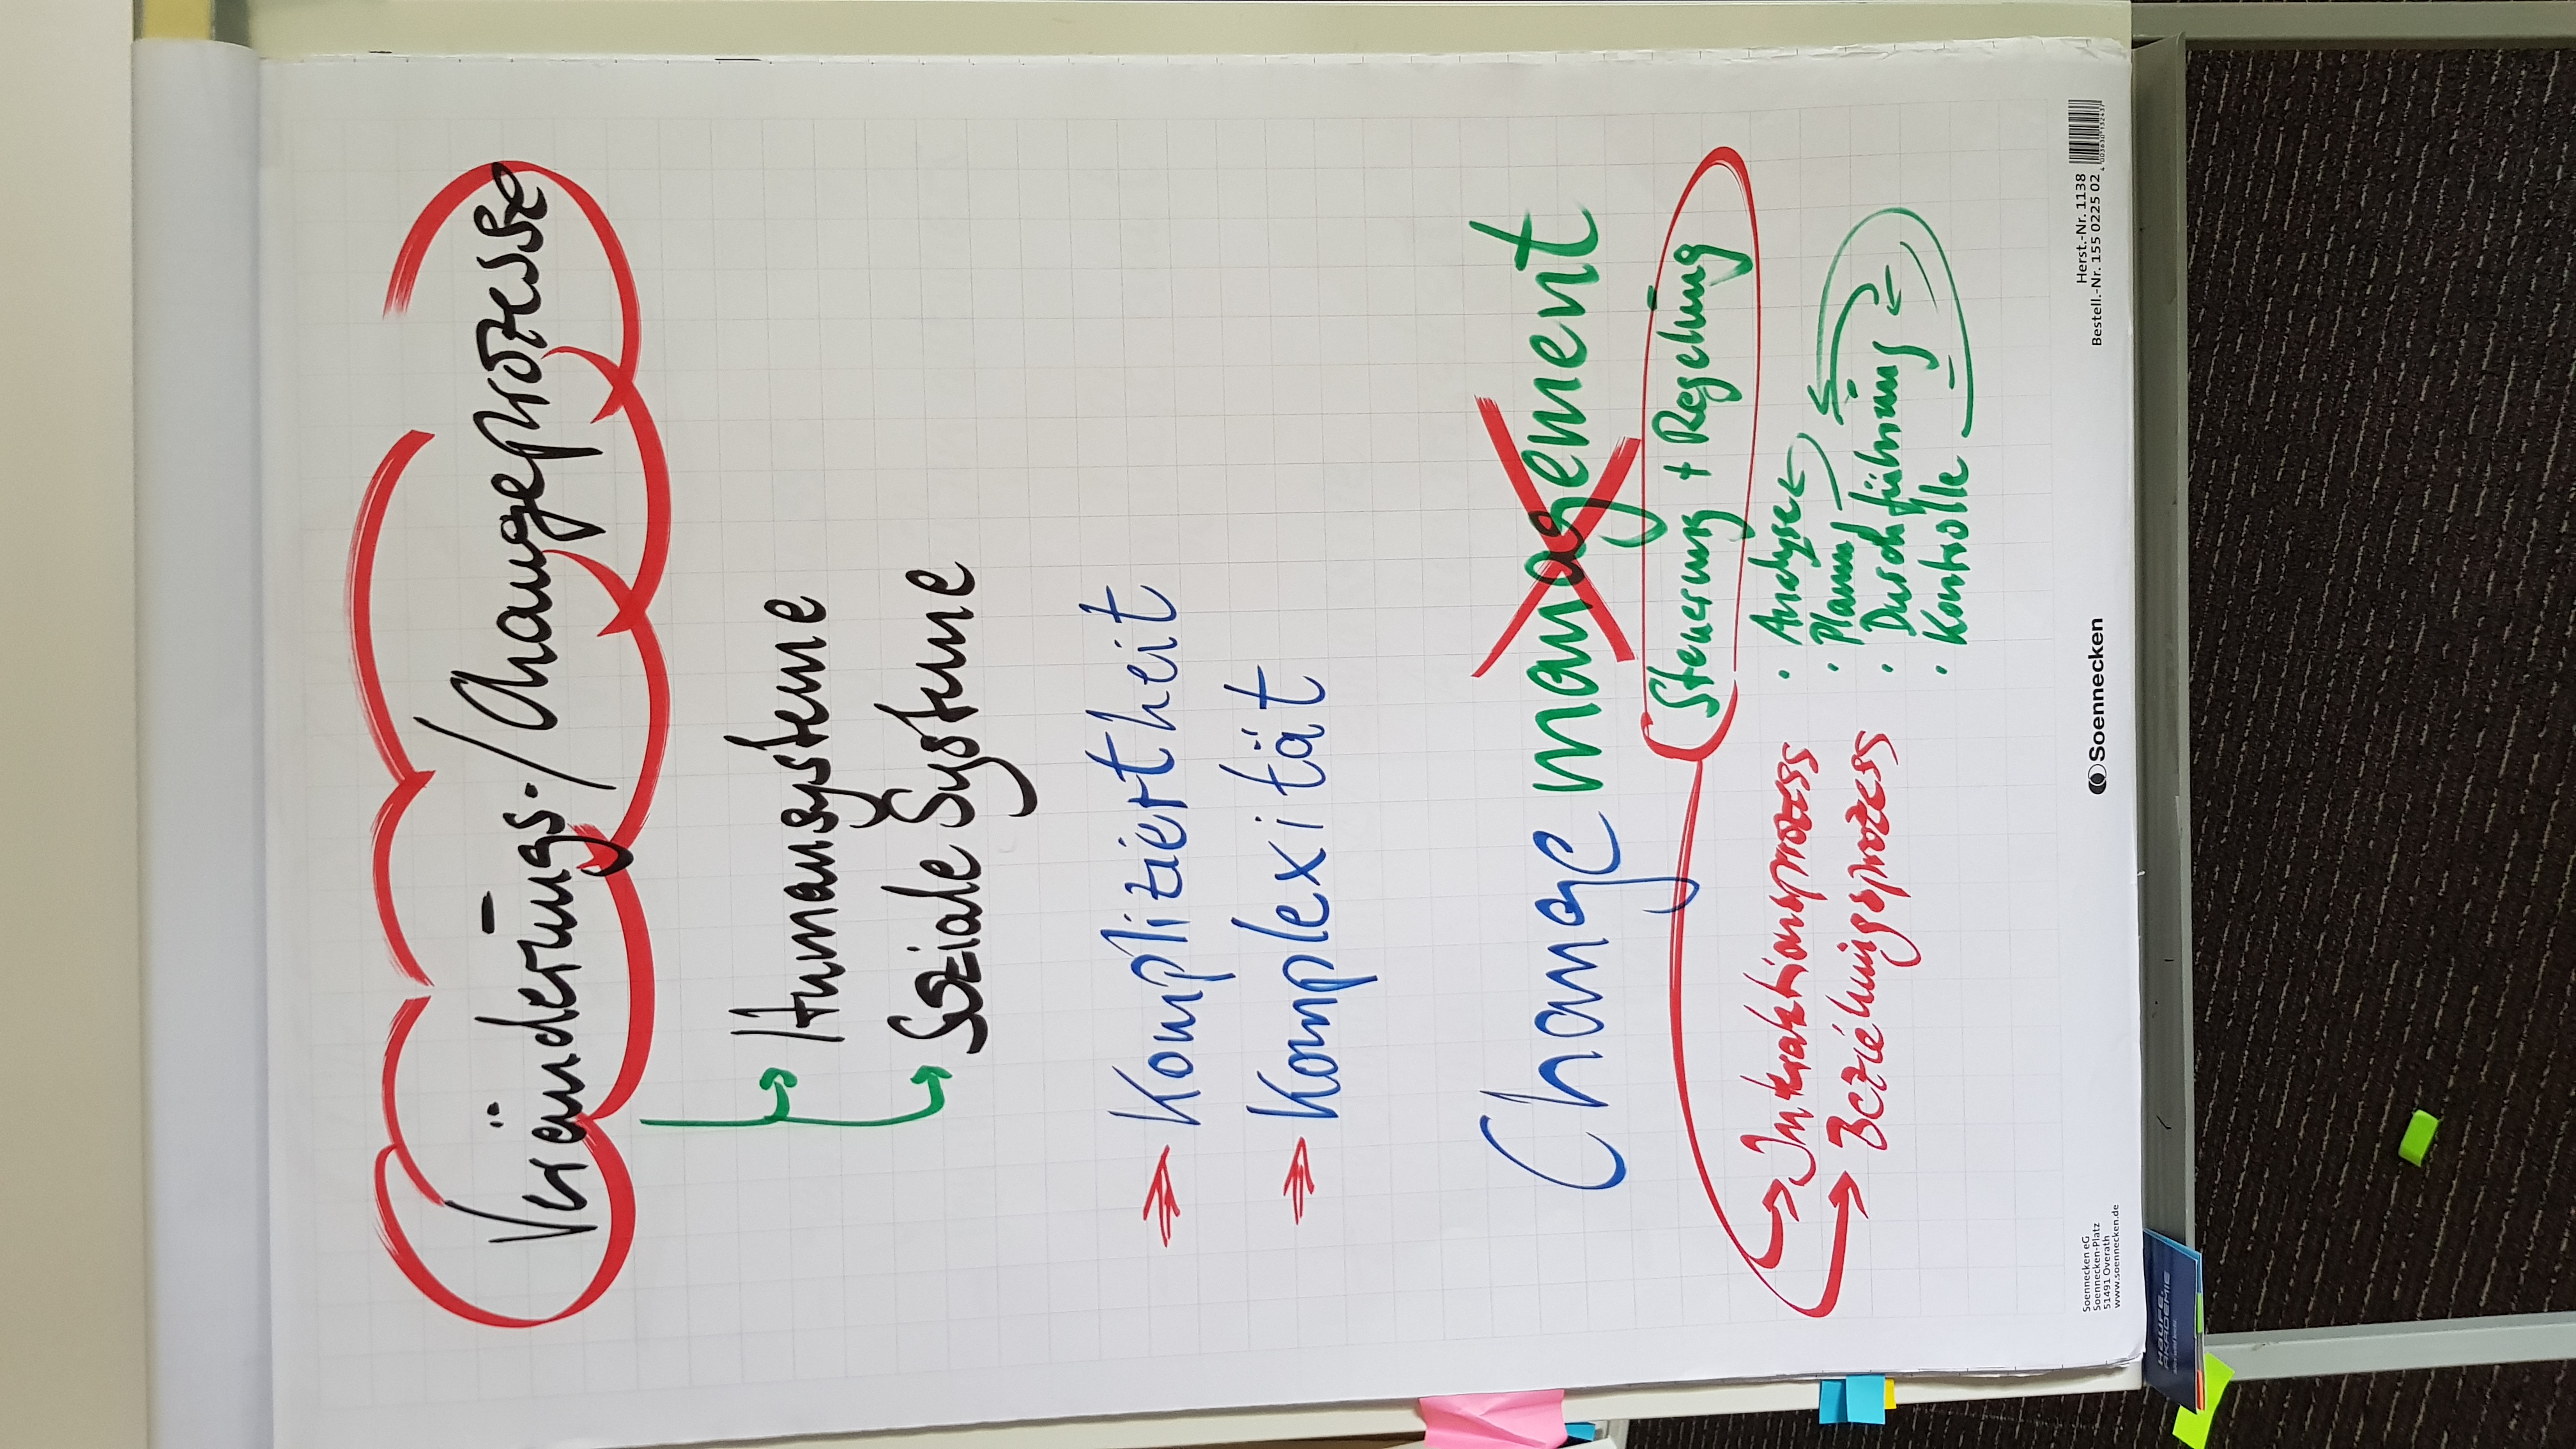 Veränderungs-/Changeprozesse
Humansysteme
Soziale Systeme
Kompliziertheit
Komplexität
Changemanagement
Steuerung + Regelung
Interaktionsprozess
Beziehungsprozess
· Analyse
· Planung
· Durchführung
· Kontrolle
Soennecken eG
Soennecken-Platz
51491 Overath
www.soennecken.de
Soennecken
Herst.-Nr. 1138
Bestell.-Nr. 155 0225 02
4 003630 132437
HAUFE.
AKADEMIE